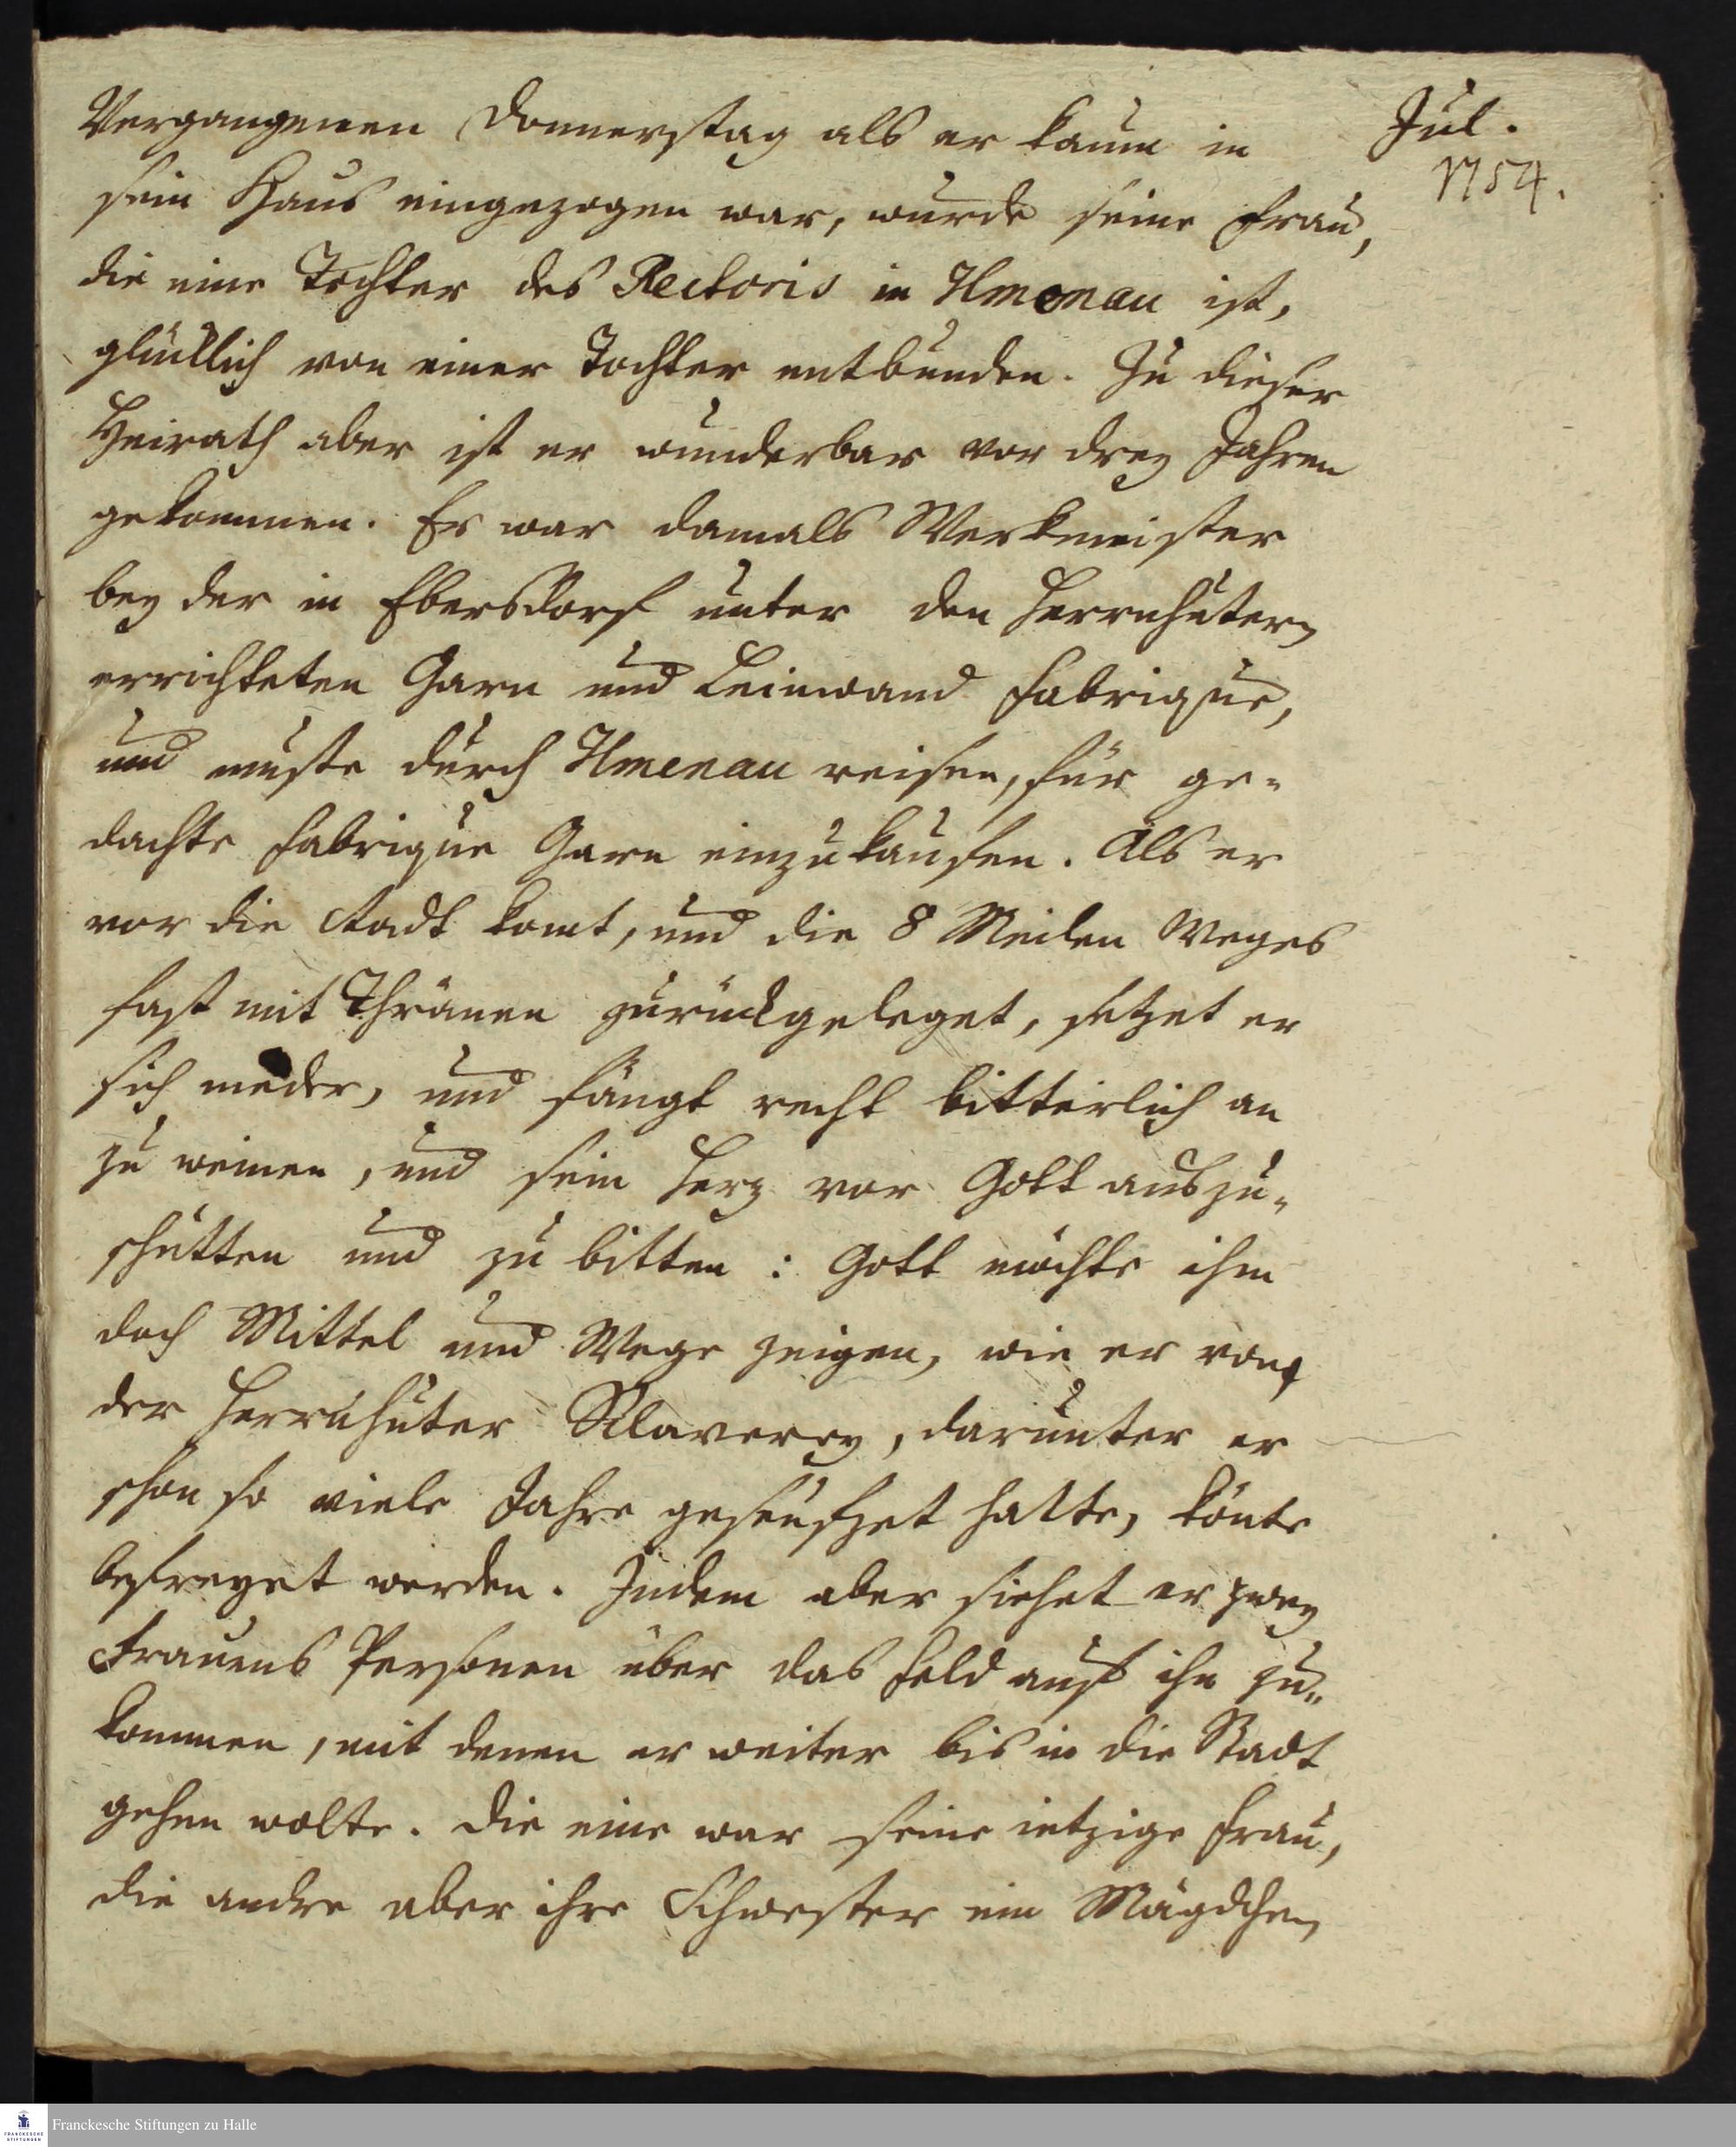 Vergangenen Donnerstag als er kaum in
Jul.
1754.
sein Haus eingezogen war, wurde seine Frau,
die eine Tochter des Rectoris in Ilmenau ist,
glücklich von einer Tochter entbunden. Zu dieser
Heirath aber ist er wunderbar vor drey Jahren
gekommen. Er war damals Werkmeister
bey der in Ebersdorf unter den Herrnhutern
errichteten Garn und Leinwand Fabrique,
und muste durch Ilmenau reisen, für ge-
dachte Fabrique Garn einzukaufen. Als er
vor die Stadt komt, und die 8 Meilen Weges
fast mit Thränen zurückgeleget, setzet er
sich nieder, und fängt recht bitterlich an
zu weinen, und sein Herz vor Gott auszu-
schütten und zu bitten: Gott möchte ihm
doch Mittel und Wege zeigen, wie er von
der Herrnhuter Sklaverey, darunter er
schon so viele Jahre geseufzet hatte, könte
befreyet werden. Indem aber siehet er zwey
Frauens Personen über das Feld auf ihn zu-
kommen, mit denen er weiter bis in die Stadt
gehen wolte. Die eine war seine ietzige Frau,
die andre aber ihre Schwester ein Mägdchen
Franckesche Stiftungen zu Halle
FRANCKESCHE
STIFTUNGEN